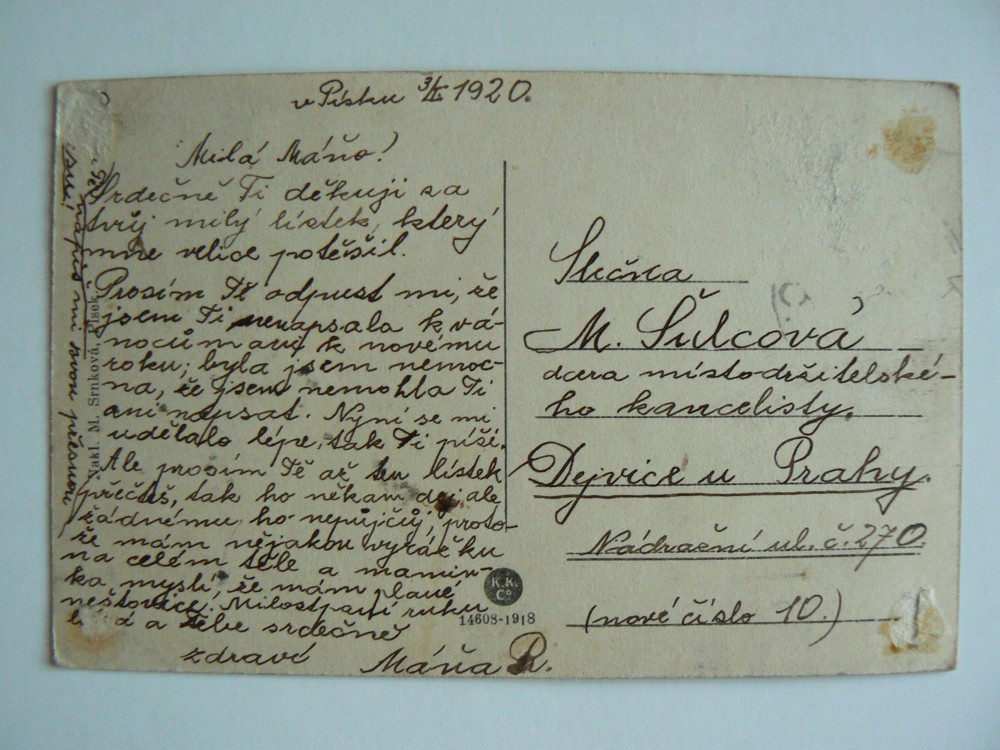 v Písku 3/I 1920.
Milá Máňo!
Srdečně Ti děkuji za
tvůj milý lístek, který
mne velice potěšil.
Prosím Tě odpust mi, že
jsem Ti nenapsala k vá-
nocům ani k novému
roku; byla jsem nemoc-
na, že jsem nemohla Ti
ani napsat. Nyní se mi
udělalo lépe, tak Ti píši.
Ale prosím Tě až ten lístek
přečteš, tak ho někam dej ale
žádnému ho nepůjčuj, proto-
že mám nějakou vyrážku
na celém těle a mamin-
ka myslí, že mám plané
neštovice. Milostpaní ruku
líbá a Tebe srdečně
zdraví Máňa R.
napiš mi svou přesnou
Nakl. M. Srnková, Písek.
K.K.
Co.
14608-1918
Slečna
M. Šulcová
dcera místodržitelské-
ho kancelisty.
Dejvice u Prahy.
Nádražní ul. č. 270.
(nové číslo 10.)